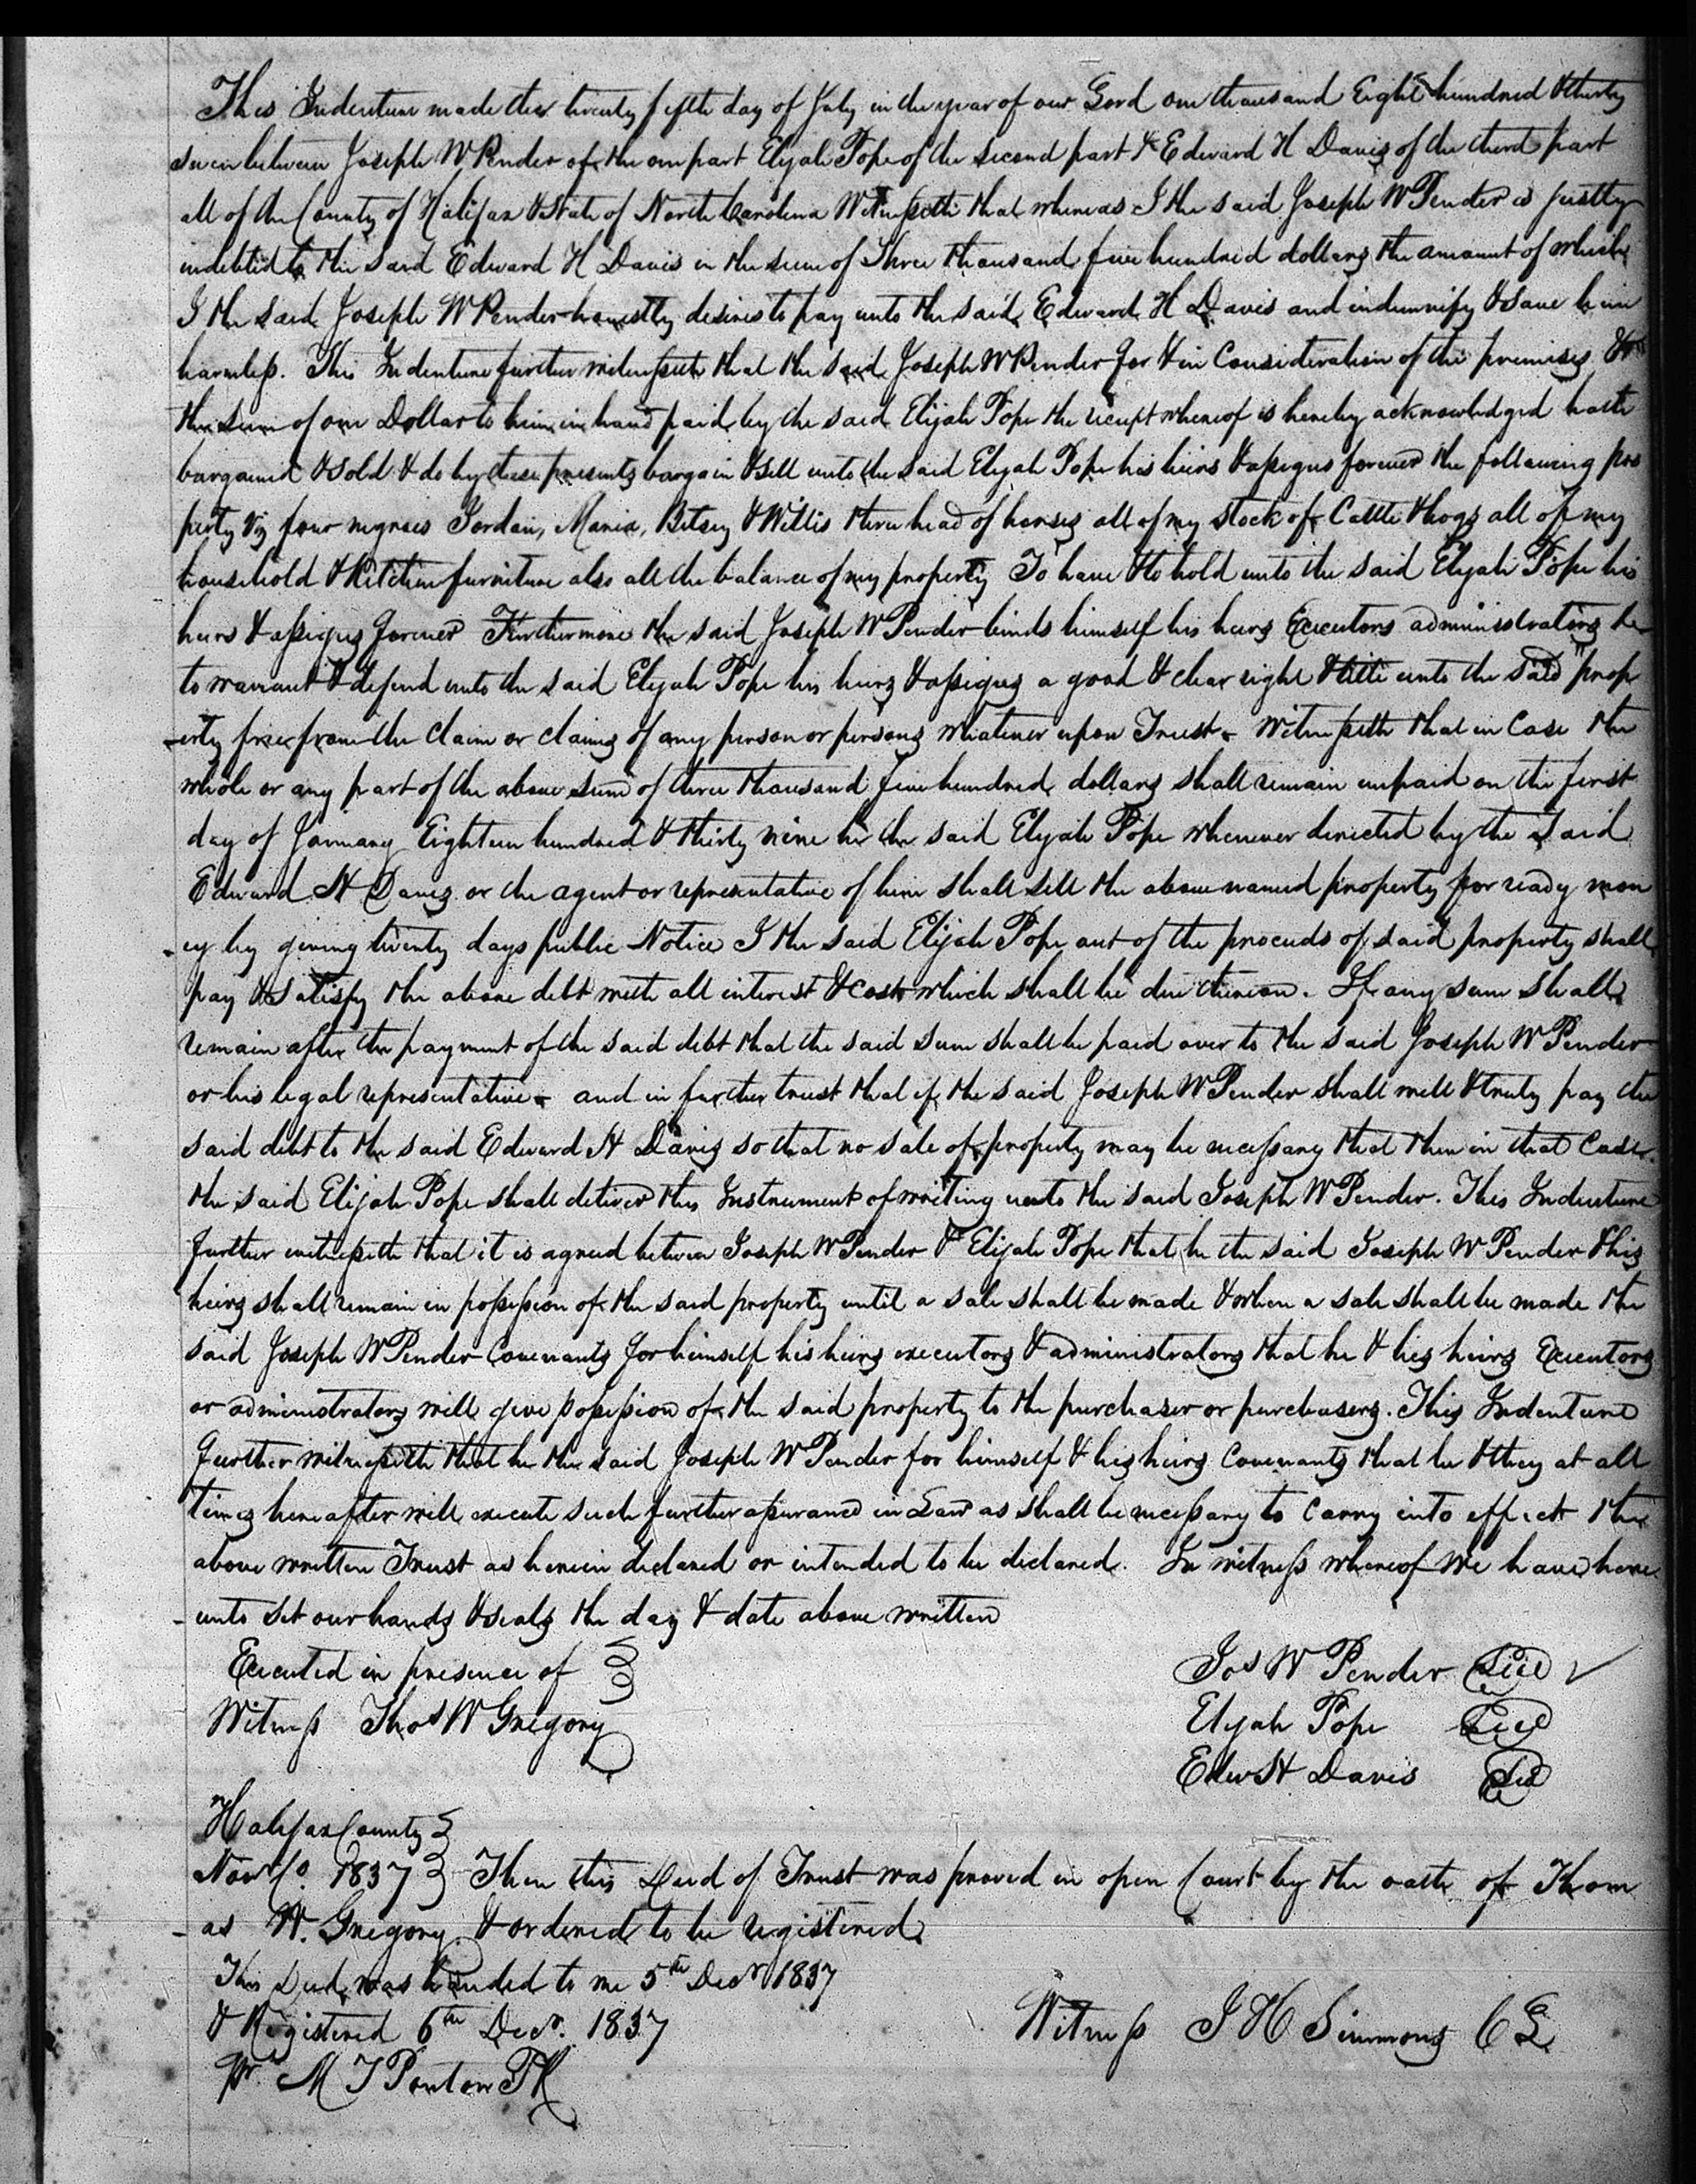 This Indenture made this twenty fifth day of July in the year of our Lord one thousand Eight hundred & thirty
seven between Joseph W Pender of the one part Elijah Pope of the second part & Edward H Davis of the third part
all of the County of Halifax & State of North Carolina Witnesseth that whereas I the said Joseph W Pender is justly
indebted to the said Edward H Davis in the sum of Three thousand five hundred dollars the amount of which
I the said Joseph W Pender honestly desires to pay unto the said Edward H Davis and indemnify & save him
harmless. This Indenture further witnesseth that the said Joseph W Pender for & in Consideration of the premises &
the sum of one Dollar to him in hand paid by the said Elijah Pope the receipt whereof is hereby acknowledged hath
bargained & sold & do by these presents bargain & sell unto the said Elijah Pope his heirs & assigns forever the following pro
perty Viz four negroes Jordan, Maria, Betsey & Willis three head of horses all of my stock of Cattle & hogs all of my
household & Kitchen furniture also all the balance of my property To have & to hold unto the said Elijah Pope his
heirs & assigns forever Furthermore the said Joseph W Pender binds himself his heirs Executors administrators &c
to warrant & defend unto the said Elijah Pope his heirs & assigns a good & clear right & title unto the said prop
-erty free from the claim or claims of any person or persons whatever upon Trust & Witnesseth that in Case the
whole or any part of the above sum of three thousand five hundred dollars shall remain unpaid on the first
day of January Eighteen hundred & thirty nine he the said Elijah Pope whenever directed by the said
Edward H Davis or the agent or representative of him shall sell the above named property for ready mon
-ey by giving twenty days public Notice I the said Elijah Pope out of the proceeds of said property shall
pay & satisfy the above debt with all interest & cost which shall be due thereon. If any sum shall
remain after the payment of the said debt that the said sum shall be paid over to the said Joseph W Pender
or his legal representative & and in further trust that if the said Joseph W Pender shall well & truly pay the
said debt to the said Edward H Davis so that no sale of property may be necessary that then in that Case
the said Elijah Pope shall deliver this Instrument of writing unto the said Joseph W Pender. This Indenture
further witnesseth that it is agreed between Joseph W Pender & Elijah Pope that he the said Joseph W Pender & his
heirs shall remain in possession of the said property until a sale shall be made & when a sale shall be made the
said Joseph W Pender Covenants for himself his heirs executors & administrators that he & his heirs Executors
or administrators will give possession of the said property to the purchaser or purchasers. This Indenture
further witnesseth that he the said Joseph W Pender for himself & his heirs Covenants that he & they at all
times hereafter will execute such further assurance in Law as shall be necessary to Carry into effect the
above written Trust as herein declared or intended to be declared. In witness whereof we have here
-unto set our hands & seals the day & date above written
Executed in presence of
Jos W Pender Seal
Witness Thos W Gregory
Elijah Pope Seal
Edw H Davis Seal
Halifax County
Nov Co. 1837 Then this Deed of Trust was proved in open Court by the oath of Thom
-as W. Gregory & ordered to be registered
This Deed was handed to me 5th Decr 1837
& Registered 6th Decr. 1837
Witness J H Simmons C C
Pr. M T Ponton P R